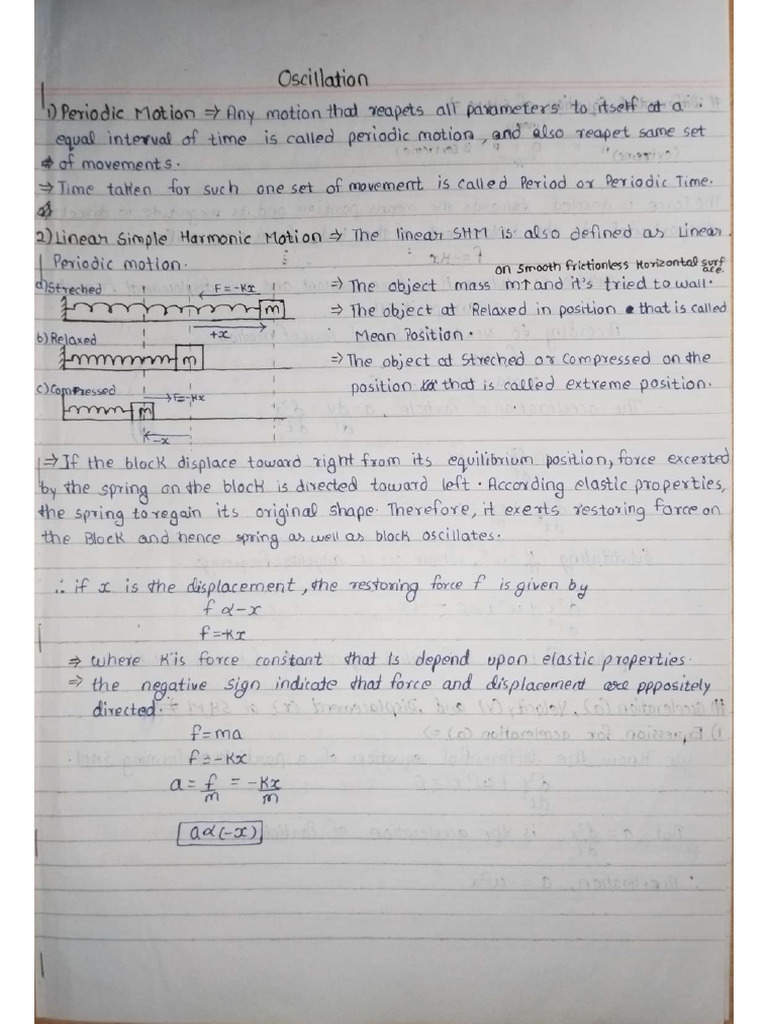 Oscillation
1) Periodic Motion ⇒ Any motion that reapets all parameters to itself at a
equal interval of time is called periodic motion, and also reapet same set
of movements.
⇒ Time taken for such one set of movement is called Period or Periodic Time.
2) Linear Simple Harmonic Motion ⇒ The linear SHM is also defined as Linear
Periodic motion.
on Smooth frictionless Horizontal surface.
a) Streched
F = -Kx
m
+x
⇒ The object mass m↑ and it's tried to wall.
⇒ The object at Relaxed in position that is called
Mean Position.
b) Relaxed
m
⇒ The object at Streched or Compressed on the
position that is called extreme position.
c) Compressed
F = -Kx
m
-x
⇒ If the block displace toward right from its equilibrium position, force excerted
by the spring on the block is directed toward left. According elastic properties,
the spring to regain its original shape. Therefore, it exerts restoring force on
the Block and hence spring as well as block oscillates.
∴ if x is the displacement, the restoring force f is given by
f α -x
f = -Kx
⇒ where K is force constant that is depend upon elastic properties.
⇒ the negative sign indicate that force and displacement are pppositely
directed.
f = ma
f = -Kx
a = f/m = -Kx/m
a α (-x)